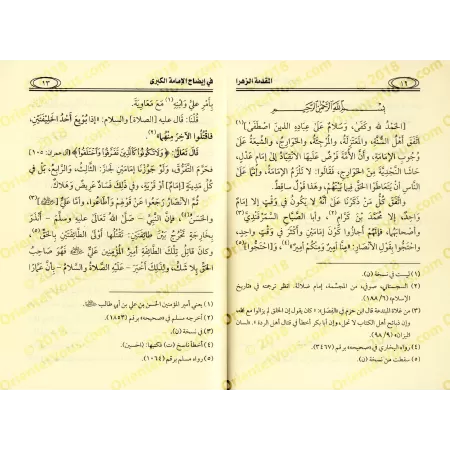 المقدمة الزهرا
١٢
بسم الله الرحمن الرحيم
[الحَمْدُ لله وكَفَى، وَسَلَامٌ عَلَى عِبَادِهِ الذين اصْطَفَى](١)
اتَّفَقَ أَهْلُ السُّنَّةِ، وَالمُعْتَزِلَةُ، وَالمُرْجِئَةُ، والخَوَارِجُ، وَالشِّيعَةُ عَلَى
وُجُوبِ الإِمَامَةِ، وَأَنَّ الأُمَّةَ فَرْضٌ عَلَيْهَا الانْقِيَادُ إِلَى إِمَامٍ عَدْلٍ،
حَاشَ النَّجَدِيَّةَ مِنَ الخَوَارِجِ، فَقَالُوا: لا تَلْزَمُ الإِمَامَةُ، وإِنَّمَا عَلَى
النَّاسِ أَنْ يَتَعَاطَوُا الحَقَّ فِيمَا بَيْنَهُمْ، وهذا قَوْلٌ سَاقِطٌ.
وَاتَّفَقَ كُلُّ مَنْ ذَكَرْنَا عَلَى أَنَّهُ لَا يَكُونُ فِي وَقْتٍ إِلا إِمَامٌ
وَاحِدٌ، إِلَّا مُحَمَّدَ بْنَ كَرَّامٍ(٢)، وأبا الصَّبَّاحِ السَّمَرْقَنْدِيَّ(٣)
وأَصْحَابَهُمَا، فإِنَّهُمْ أَجَازُوا كَوْنَ إِمَامَيْنِ وَأَكْثَرَ فِي وَقْتٍ وَاحِدٍ،
وَاحْتَجُّوا بِقَوْلِ الأَنْصَارِ: «مِنَّا أَمِيرٌ ومِنكُمْ أَمِيرٌ»(٤)، و[احْتَجُّوا](٥)
(١) ليست في نسخة (ن).
(٢) السجستاني، صوفي، من المجسِّمة، إمام ضلالة. انظر ترجمته في «تاريخ
الإسلام» (٦/ ١٨٨).
(٣) من غلاة المبتدعة قال ابن حزم في «الفِصَل»: «كان يقول إن الخلق لم يزالوا مع الله،
وإن ذبائح أهل الكتاب لا تحل، وإن أبا بكر أخطأ في قتال أهل الردة». «لسان
الميزان» (٩/ ٩٨).
(٤) رواه البخاري في «صحيحه» برقم (٣٤٦٧).
(٥) سقطت من نسخة (ن).
في إيضاح الإمامة الكبرى
١٣
بِأَمْرِ عليٍّ وَابْنِهِ(١) مَعَ مَعَاوِيَةَ.
قُلْنَا: قَالَ عليه [الصلاة] والسلام: «إذَا بُويِعَ أَحَدُ الخَلِيفَتَيْنِ،
فَاقْتُلُوا الآخِرَ مِنْهُمَا»(٢)
قَالَ تَعَالَى: ﴿وَلَا تَكُونُوا كَالَّذِينَ تَفَرَّقُوا وَاخْتَلَفُوا﴾ [آل عمران: ١٠٥]
فَحَرَّمَ التَّفَرُّقَ، وَلَوْ جَوَّزْنَا إِمَامَيْنِ لَجَازَ: الثَّالِثُ، وَالرَّابِعُ، بَلْ فِي
كُلِّ مَدِينَةٍ [إِمَامٌ] أوْ قَرْيَةٍ، وفي ذَلِكَ فَسَادٌ عَرِيضٌ وَهَلَاكٌ.
ثُمَّ الأَنْصَارُ رَجَعُوا عَنْ قَوْلِهِمْ وَأَطَاعُوا، وأمَّا عَلِيٌّ
والحَسَنُ(٤)، فَإِنَّ النَّبِيَّ – صَلَّى اللهُ تَعَالَى عَلَيه وسلم – أَنْذَرَ
بِخَارِجَةٍ تَخْرُجُ بَيْنَ طَائِفَتَيْنِ: تَقْتُلُهَا أَوْلَى الطَّائِفَتَيْنِ بِالحَقِّ(٥)،
وكَانَ قَاتِلُ تِلْكَ الطَّائِفَةِ أَمِيرُ المُؤْمِنِينَ عَلِيٌّ فَهُوَ صَاحِبُ
الحَقِّ بِلا شَكٍّ، وكذلِكَ أَخْبَرَ – عَلَيْهِ الصَّلَاةُ والسَّلامُ – بِأَنَّ عَمَّارًا
(١) يعني أمير المؤمنين الحسن بن علي بن أبي طالب
(٢) أخرجه مسلم في «صحيحه» برقم (١٨٥٣).
(٣) في نسخة (ن)
(٤) أخطأ ناسخ (ت) فكتبها: (الحسين).
(٥) رواه مسلم برقم (١٠٦٤)